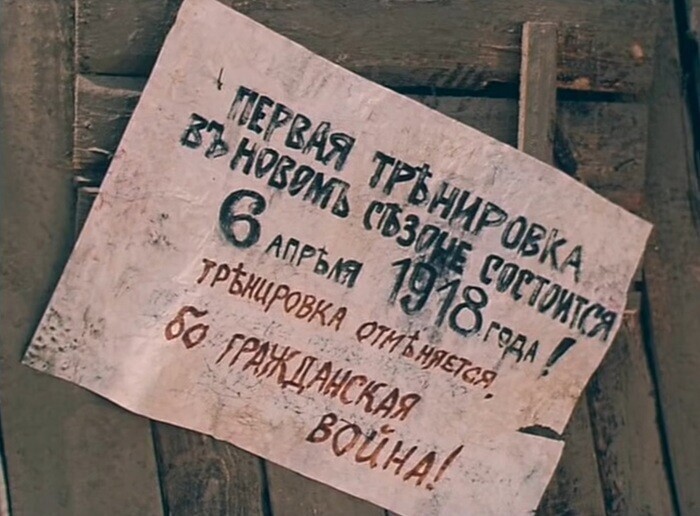 ПЕРВАЯ ТРѢНИРОВКА
ВЪ НОВОМЪ СѢЗОНЕ СОСТОИТСЯ
6 АПРѢЛЯ 1918 ГОДА!
ТРѢНИРОВКА ОТМѢНЯЕТСЯ,
бо ГРАЖДАНСКАЯ
ВОЙНА!